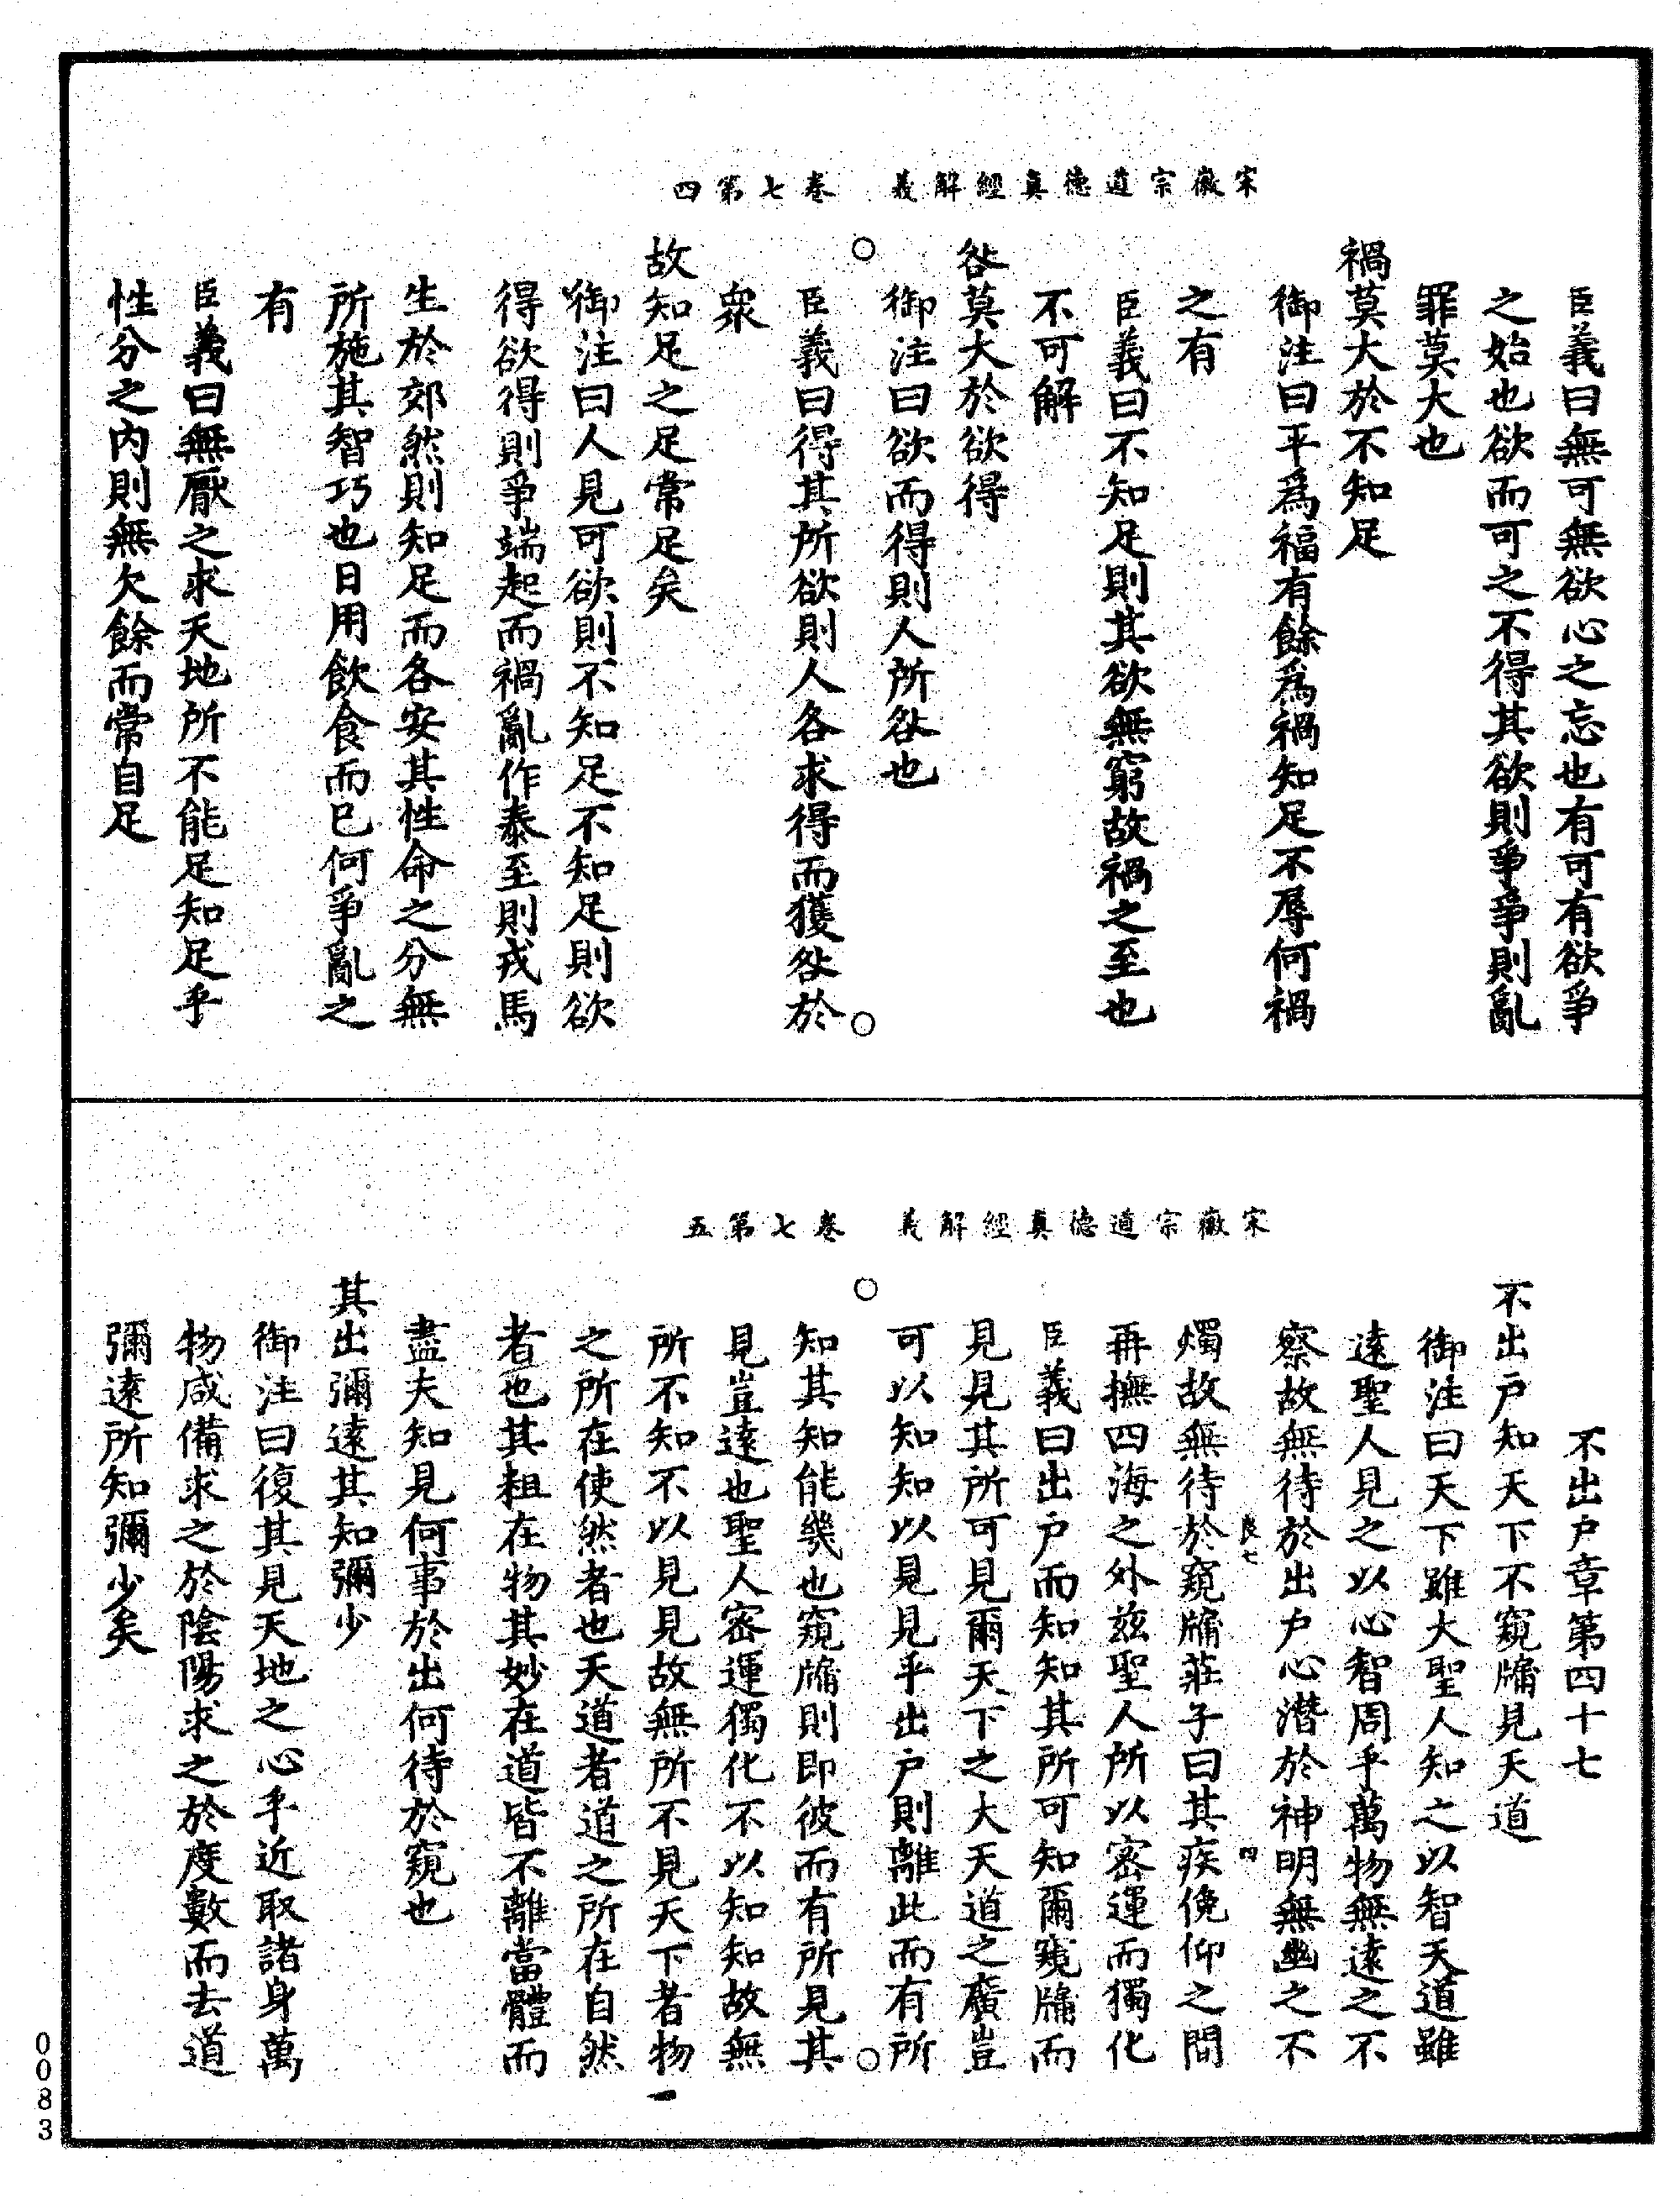 宋徽宗道德真經解義　卷七第四
臣義曰無可無欲心之忘也有可有欲爭
之始也欲而可之不得其欲則爭爭則亂
罪莫大也
禍莫大於不知足
御注曰平爲福有餘爲禍知足不辱何禍
之有
臣義曰不知足則其欲無窮故禍之至也
不可解
咎莫大於欲得
御注曰欲而得則人所咎也
臣義曰得其所欲則人各求得而獲咎於
衆
故知足之足常足矣
御注曰人見可欲則不知足不知足則欲
得欲得則爭端起而禍亂作泰至則戎馬
生於郊然則知足而各安其性命之分無
所施其智巧也日用飲食而已何爭亂之
有
臣義曰無厭之求天地所不能足知足乎
性分之内則無欠餘而常自足
宋徽宗道德真經解義　卷七第五
不出戶章第四十七
不出戶知天下不窺牖見天道
御注曰天下雖大聖人知之以智天道雖
遠聖人見之以心智周乎萬物無遠之不
察故無待於出戶心潛於神明無幽之不
良七　四
燭故無待於窺牖莊子曰其疾俛仰之間
再撫四海之外兹聖人所以密運而獨化
臣義曰出戶而知知其所可知爾窺牖而
見見其所可見爾天下之大天道之廣豈
可以知知以見見乎出戶則離此而有所
知其知能幾也窺牖則即彼而有所見其
見豈遠也聖人密運獨化不以知知故無
所不知不以見見故無所不見天下者物
之所在使然者也天道者道之所在自然
者也其粗在物其妙在道皆不離當體而
盡夫知見何事於出何待於窺也
其出彌遠其知彌少
御注曰復其見天地之心乎近取諸身萬
物咸備求之於陰陽求之於度數而去道
彌遠所知彌少矣
0083